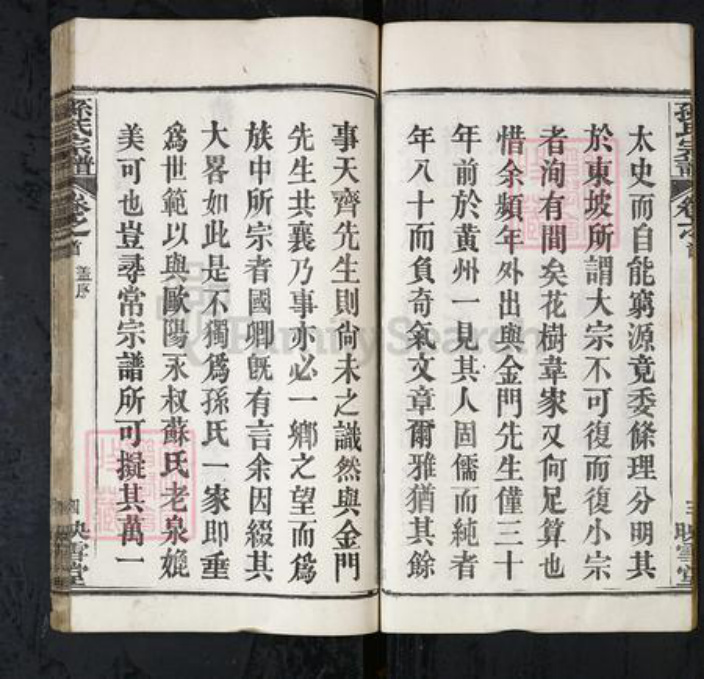 孫氏宗譜
卷之首
三
映雪堂
太史而自能窮源竟委條理分明其
於東坡所謂大宗不可復而復小宗
者洵有間矣花樹韋家又何足算也
惜余頻年外出與金門先生僅三十
年前於黃州一見其人固儒而純者
年八十而負奇氣文章爾雅猶其餘
事天齊先生則尙未之識然與金門
先生共襄乃事亦必一鄉之望而爲
族中所宗者國卿旣有言余因綴其
大畧如此是不獨爲孫氏一家卽垂
爲世範以與歐陽永叔蘇氏老泉媲
美可也豈尋常宗譜所可擬其萬一
孫氏宗譜
卷之首
盖序
四
映雪堂
FamilySearch